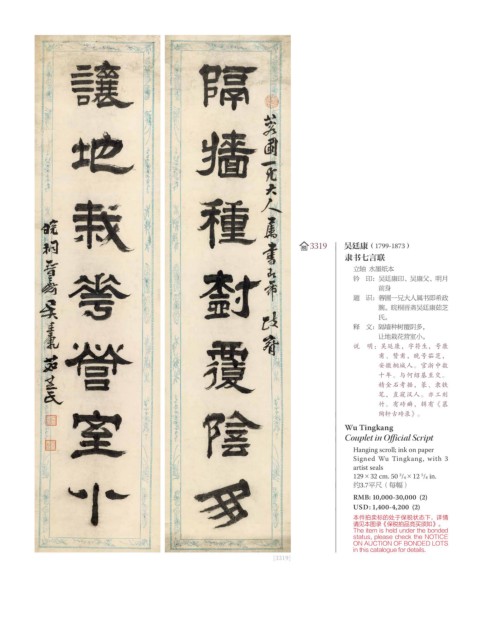 隔牆種樹覆陰多
讓地栽花營室小
3319
吴廷康（1799-1873）
隶书七言联
立轴 水墨纸本
钤 印：吴廷康印、吴康父、明月
前身
题 识：
释 文：隔墙种树覆阴多，
让地栽花营室小。
说 明：吴廷康，字符生，号康
甫、晋斋，晚号茹芝，
安徽桐城人。官浙中数
十年，与何绍基至交。
精金石考据，篆、隶铁
笔，直窥汉人，亦工刻
竹。有砖癖，辑有《慕
陶轩古砖录》。
Wu Tingkang
Couplet in Official Script
Hanging scroll; ink on paper
Signed Wu Tingkang, with 3
artist seals
129 × 32 cm. 50 3/4 × 12 5/8 in.
约3.7平尺（每幅）
RMB: 10,000-30,000 (2)
USD: 1,400-4,200 (2)
本件拍卖标的处于保税状态下，详情
请见本图录《保税拍品竞买须知》。
The item is held under the bonded
status, please check the NOTICE
ON AUCTION OF BONDED LOTS
in this catalogue for details.
[3319]